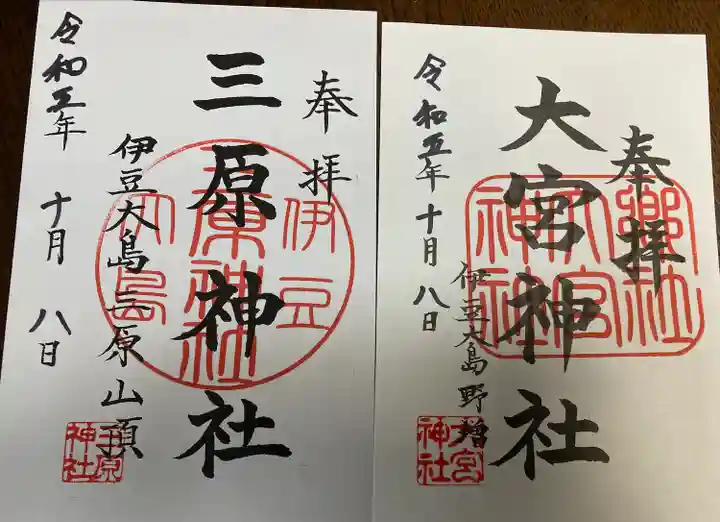 奉拝
三原神社
伊豆大島三原山頂
令和五年
十月
八日
伊豆
三原神社
大島
三原
神社
奉拝
大宮神社
伊豆大島野増
令和五年十月八日
郷社
大宮
神社
大宮
神社